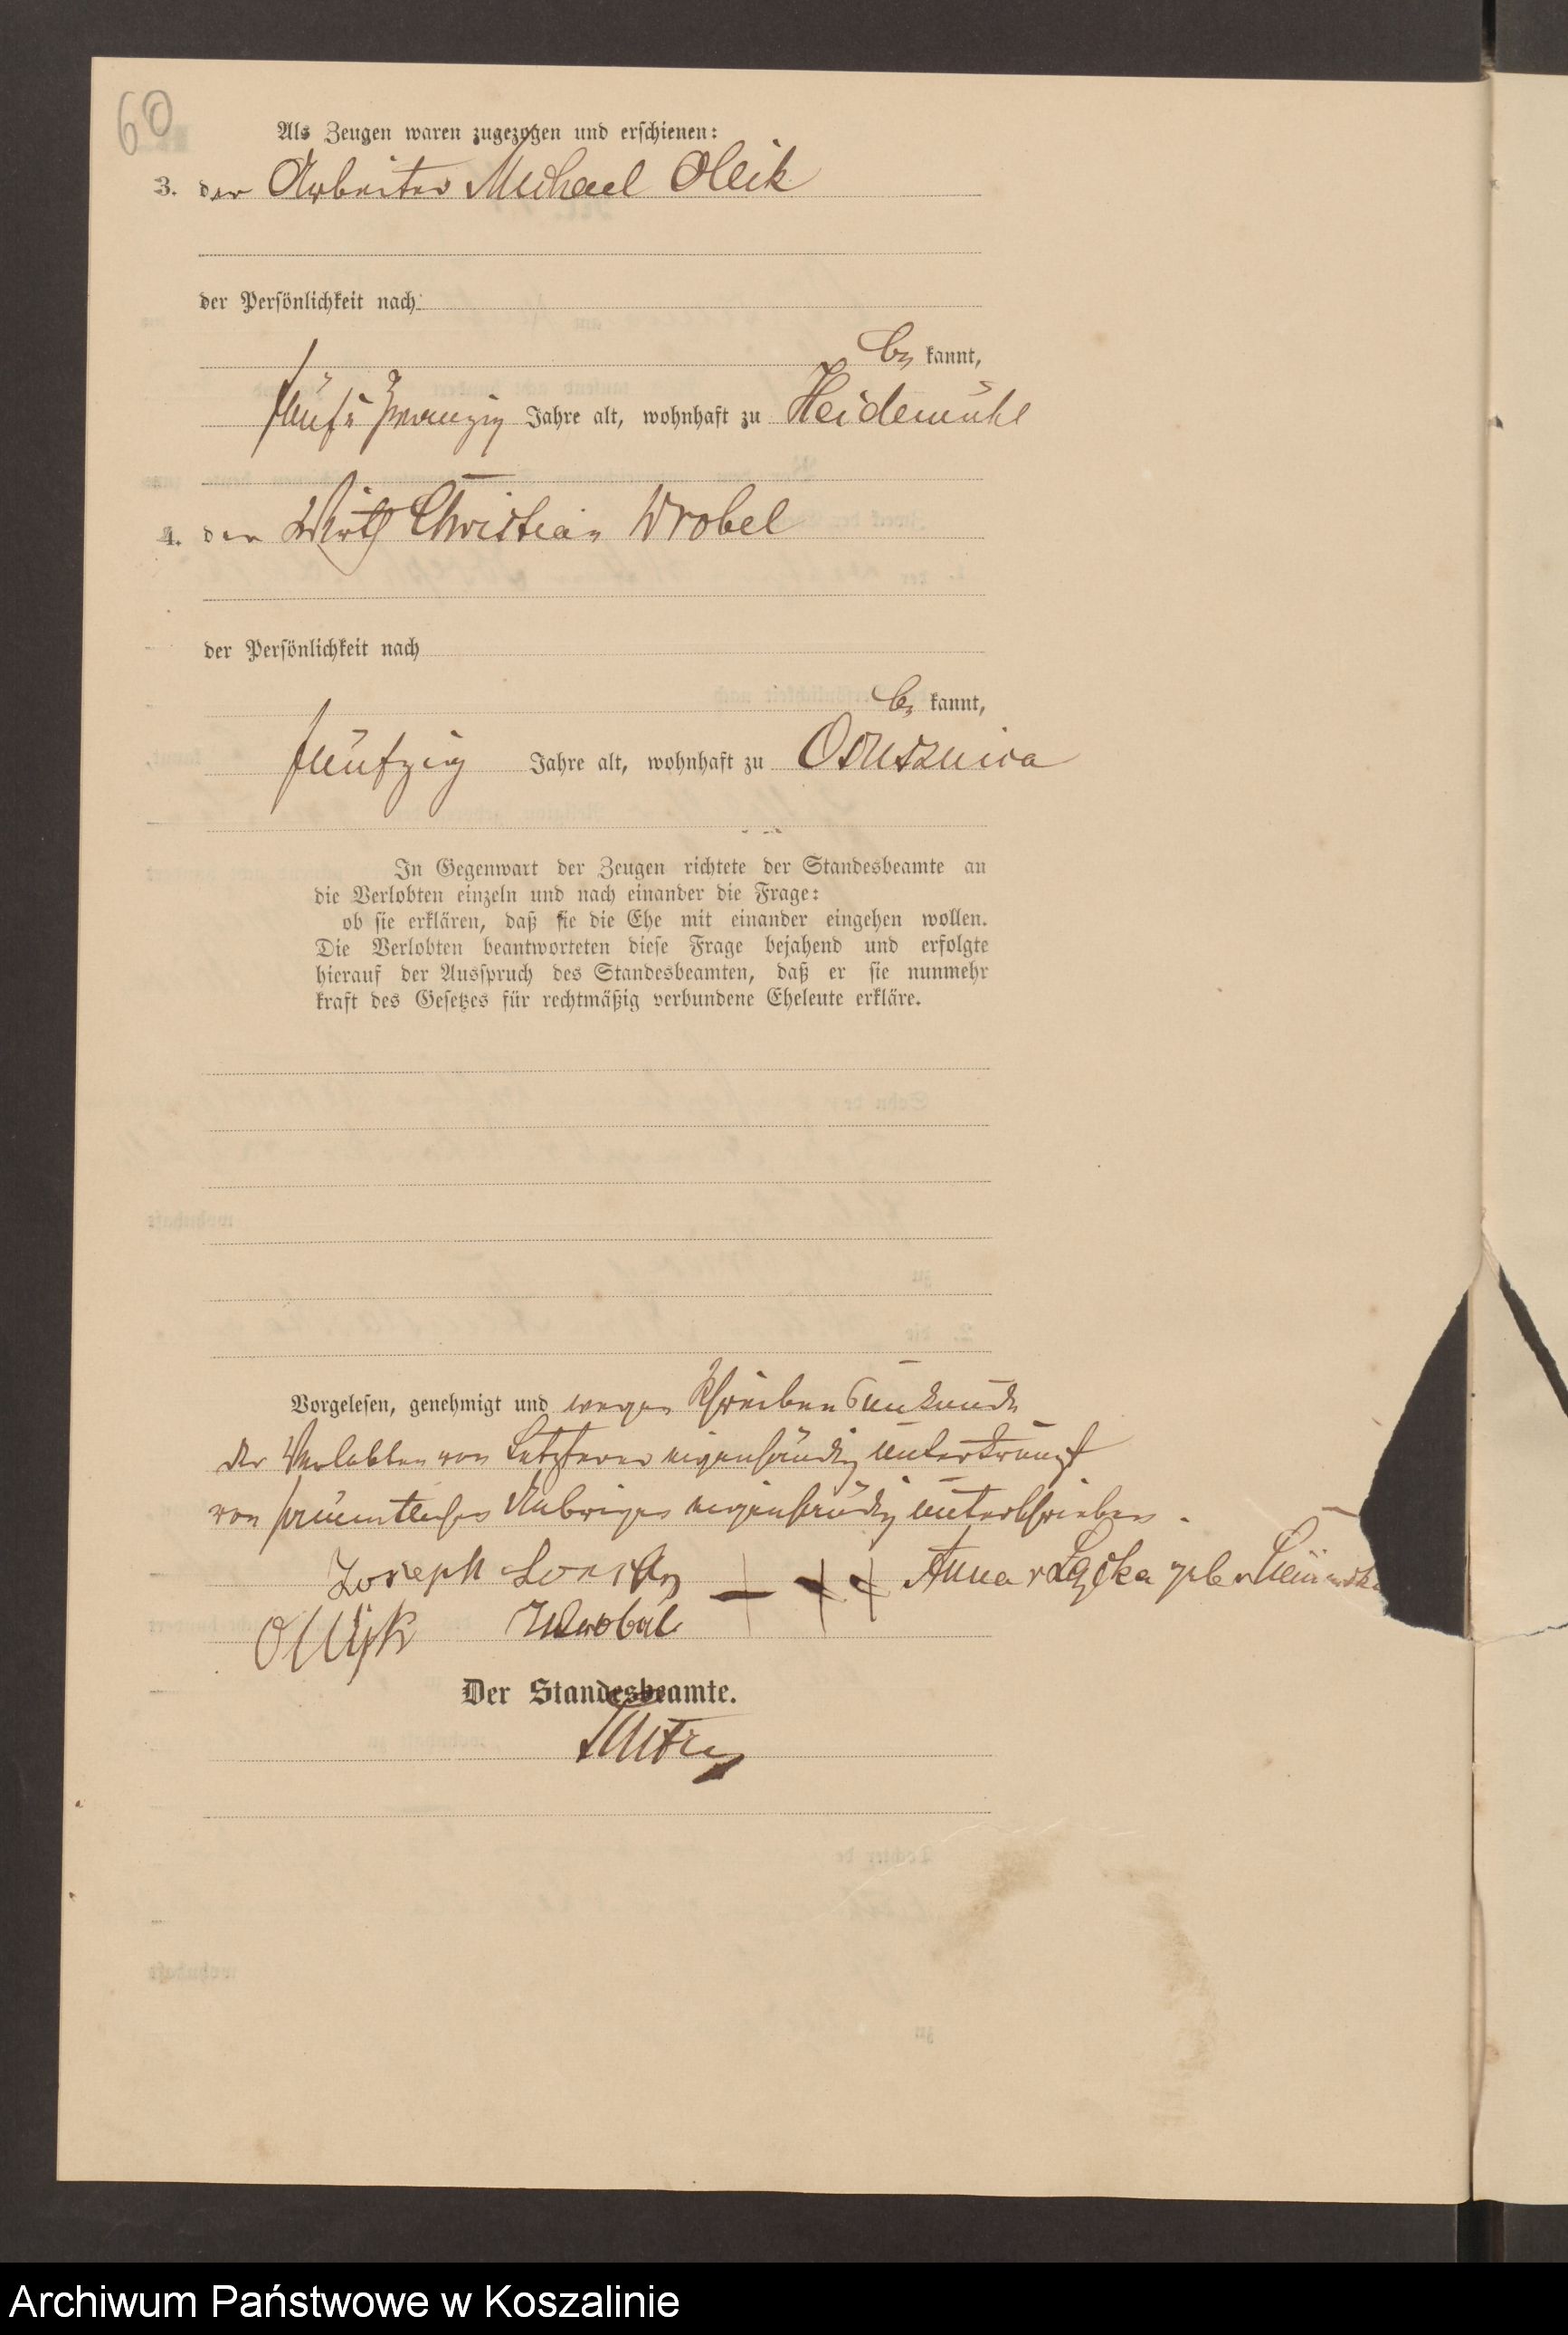 60
Als Zeugen waren zugezogen und erschienen:
3. der Arbeiter Michael Oleik
der Persönlichkeit nach
be kannt,
fünf u zwanzig Jahre alt, wohnhaft zu Heidemühl
4. der Wirth Christian Wrobel
der Persönlichkeit nach
be kannt,
fünfzig Jahre alt, wohnhaft zu Ossusznica
In Gegenwart der Zeugen richtete der Standesbeamte an
die Verlobten einzeln und nach einander die Frage:
ob sie erklären, daß sie die Ehe mit einander eingehen wollen.
Die Verlobten beantworteten diese Frage bejahend und erfolgte
hierauf der Ausspruch des Standesbeamten, daß er sie nunmehr
kraft des Gesetzes für rechtmäßig verbundene Eheleute erkläre.
Vorgelesen, genehmigt und wegen Schreibensunkunde
der Verlobten von Letzterer eigenhändig unterkreuzt
von sämmtlichen Uebrigen eigenhändig unterschrieben.
Joseph +++ Anna v Lącka geb v
Wrobel
Der Standesbeamte.
Archiwum Państwowe w Koszalinie